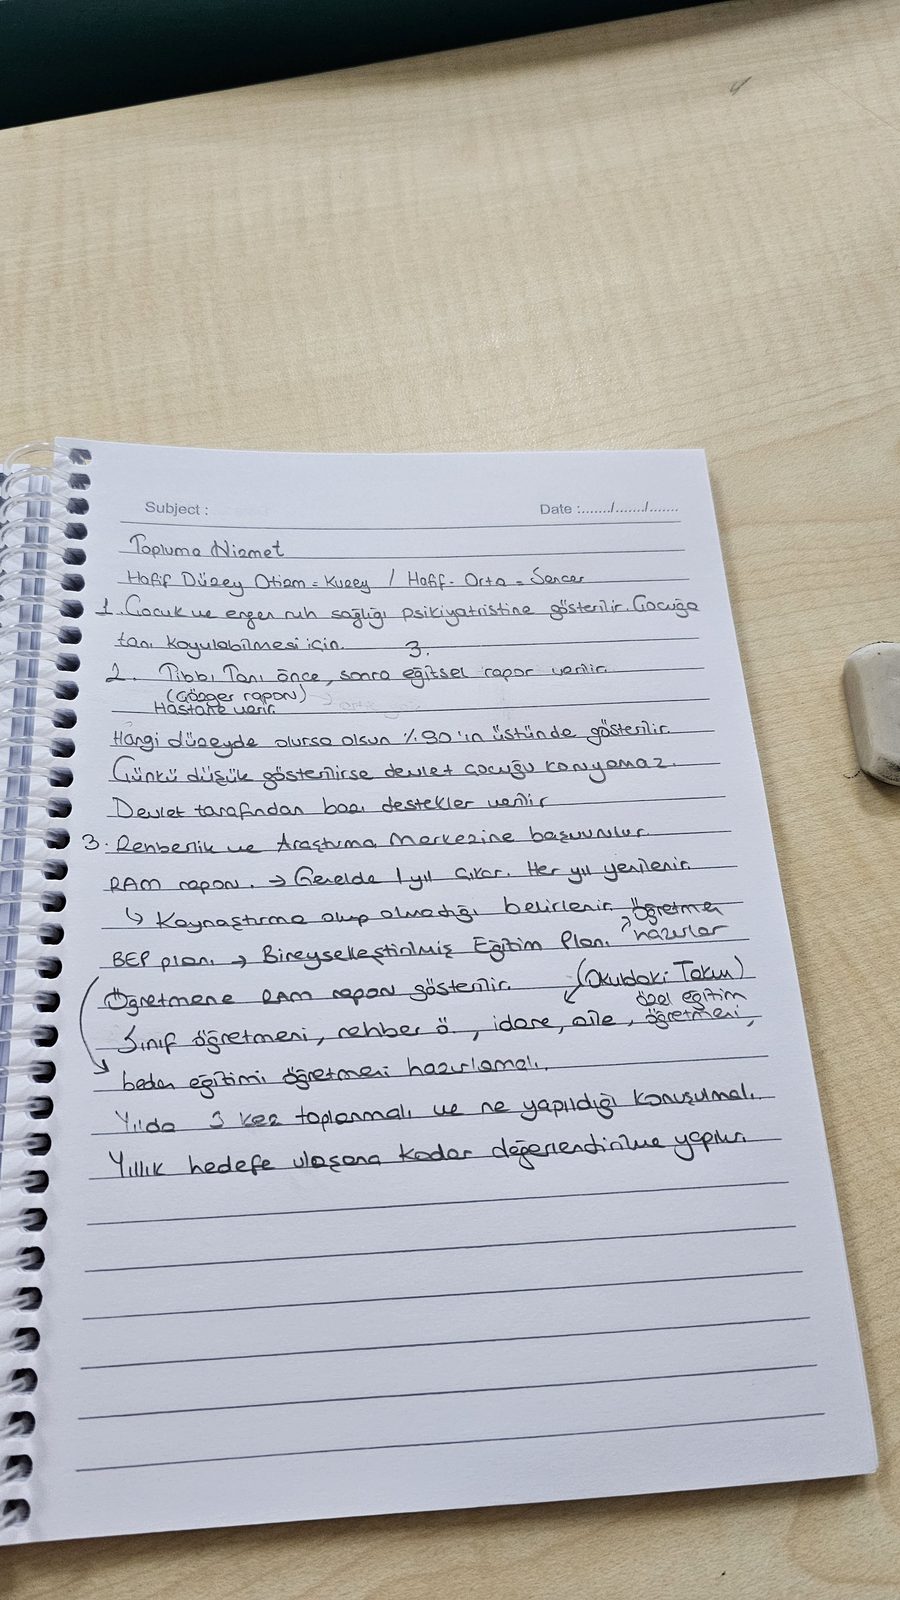 Subject : Date :......./......./.......
Topluma Hizmet
Hafif Düzey Otizm = Kuzey / Hafif - Orta = Sencer
1. Çocuk ve ergen ruh sağlığı psikiyatristine gösterilir. Çocuğa
tanı koyulabilmesi için.
3.
2. Tıbbı Tanı önce, sonra eğitsel rapor verilir.
(Gözger rapon)
Hastane verir.
Hangi düzeyde olursa olsun %90'ın üstünde gösterilir.
Çünkü düşük gösterilirse devlet çocuğu koruyamaz.
Devlet tarafından bazı destekler verilir
3. Rehberlik ve Araştırma Merkezine başvurulur.
RAM raporu. → Genelde 1 yıl çıkar. Her yıl yenilenir.
↳ Kaynaştırma olup olmadığı belirlenir.
öğretmen
hazırlar
BEP planı → Bireyselleştirilmiş Eğitim Planı
Öğretmene RAM raporu gösterilir. (Okuldaki Takım)
özel eğitim
Sınıf öğretmeni, rehber ö., idare, aile, öğretmeni,
beden eğitimi öğretmeni hazırlamalı.
Yılda 3 kez toplanmalı ve ne yapıldığı konuşulmalı.
Yıllık hedefe ulaşana kadar değerlendirilme yapılır.